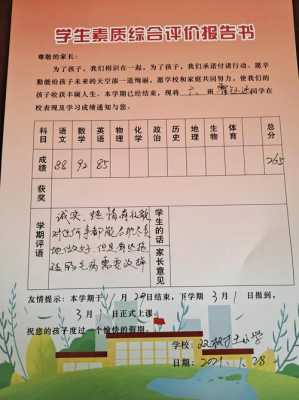 学生素质综合评价报告书
尊敬的家长:
为了孩子，我们相识在一起，为了孩子，我们承诺付诸行动。愿辛
勤能给孩子未来的天空添一道绚丽，愿学校和家庭共同努力，使我们的
孩子收获丰硕人生。本学期已经结束，现将 六 班 同学在
校表现及学习成绩通知与您。
科目 语文 数学 英语 物理 化学 政治 历史 地理 生物 体育 总分
成绩 88 92 85 265
获奖
学期评语
诚实、热情有礼貌
对任何事都能
地做好 但是有些拖
拉的毛病需要改掉
学生的话
家长意见
友情提示：本学期于 月 28日结束，下学期 3 月 1 日报到，
3 月 日正式上课。
祝您的孩子度过一个愉快的假期。
学校: 小学
日期: 2021.1.28